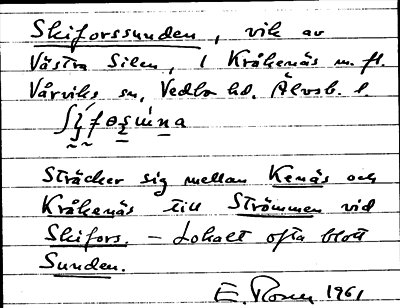 Skiforssunden, vik av
Västra Silen, i Kråkenäs m. fl.
Vårviks sn, Vedbo hd. Älvsb. l.
Sträcker sig mellan Kenäs och
Kråkenäs till Strömmen vid
Skifors. – Lokalt ofta blott
Sunden.
E. Rosen 1961